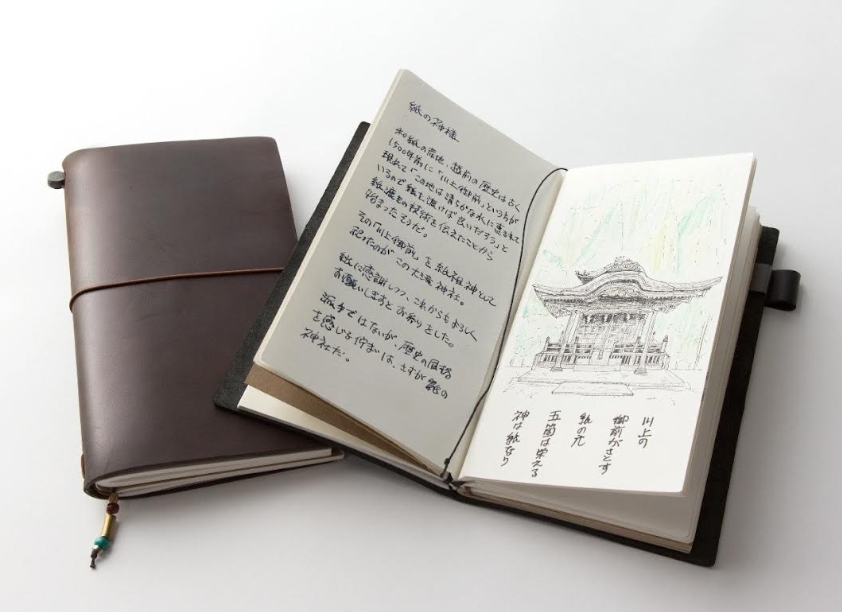 紙の神様
和紙の産地、越前の歴史は古く
1500年前に「川上御前」という方が
現れて「この地は清らかな水に恵まれて
いるので紙を漉けば良いだろう」と
紙漉きの技術を伝えたことから
始まったそうだ。
その「川上御前」を紙祖神として
祀ったのがこの大瀧神社。
紙に感謝しつつ、これからもよろしく
お願いしますとお祈りをした。
派手ではないが、歴史の風格
を感じる佇まいは、さすが紙の
神社だ。
川上の
御前がさとす
紙の元
五箇は栄える
神は紙なり